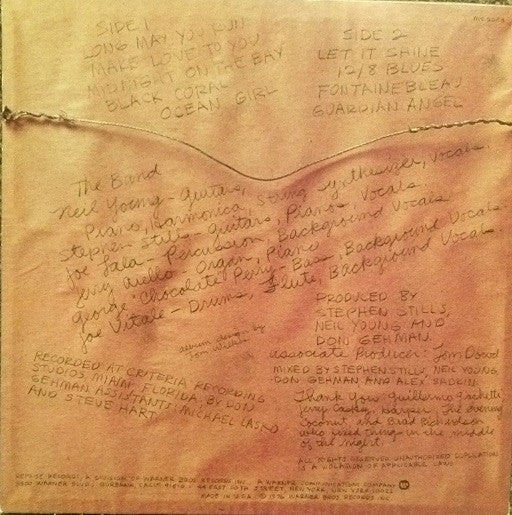 SIDE 1
LONG MAY YOU RUN
MAKE LOVE TO YOU
MIDNIGHT ON THE BAY
BLACK CORAL
OCEAN GIRL
SIDE 2
LET IT SHINE
12/8 BLUES
FONTAINEBLEAU
GUARDIAN ANGEL
The Band
Neil Young - Guitars,
Piano, Harmonica, String Synthesizer, Vocals.
Stephen Stills - Guitars, Pianos, Vocals
Joe Lala - Percussion, Background Vocals
Jerry Aiello - Organ, Piano
George "Chocolate" Perry - Bass, Background Vocals.
Joe Vitale - Drums, Flute, Background Vocals.
album design by
Tom Wilkes
RECORDED AT CRITERIA RECORDING
STUDIOS, MIAMI, FLORIDA. BY DON
GEHMAN. ASSISTANTS: MICHAEL LASKO
AND STEVE HART
PRODUCED BY
STEPHEN STILLS,
NEIL YOUNG AND
DON GEHMAN.
Associate Producer: Tom Dowd
MIXED BY STEPHEN STILLS, NEIL YOUNG,
DON GEHMAN AND ALEX SADKIN.
Thank You: Guillermo
Jerry Harper, The
Coconut and Brad Richardson
who fixed things in the middle
of the night.
ALL RIGHTS RESERVED. UNAUTHORIZED DUPLICATION
IS A VIOLATION OF APPLICABLE LAWS
REPRISE RECORDS, A DIVISION OF WARNER BROS RECORDS INC. A WARNER COMMUNICATIONS COMPANY
3300 WARNER BLVD., BURBANK, CALIF. 91510 • 44 EAST 50TH STREET, NEW YORK, NEW YORK 10022
MADE IN U.S.A. © 1976 WARNER BROS RECORDS INC